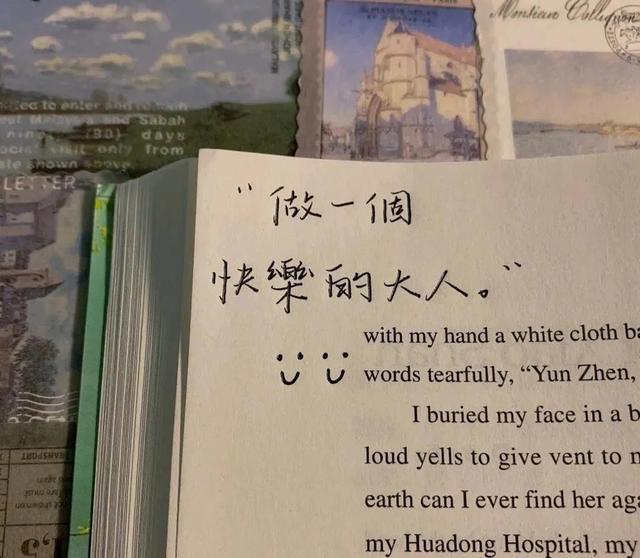 PARIS
Monsieur
ed to enter and remain
Malaysia and Sabah
(30) days
ocial visit only from
ate shown above
LETTER
“做一個
快樂的大人。”
with my hand a white cloth ba
words tearfully, “Yun Zhen,
I buried my face in a b
loud yells to give vent to m
earth can I ever find her aga
my Huadong Hospital, my
TRANSPORT